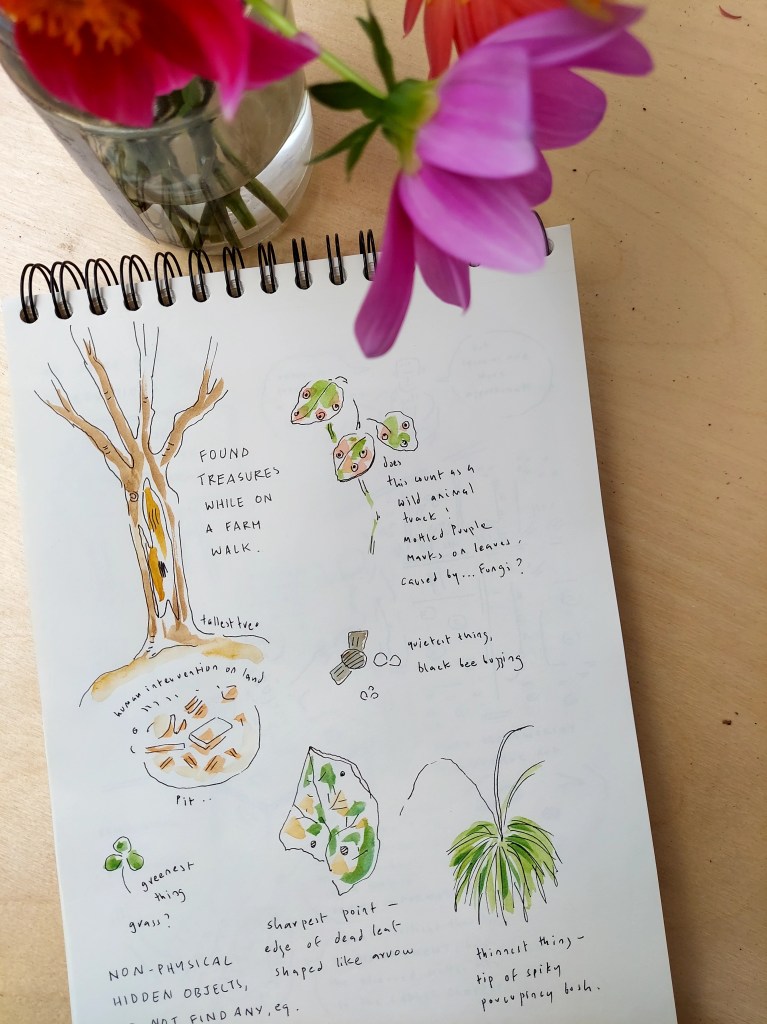 FOUND
TREASURES
WHILE ON
A FARM
WALK.
does
this count as a
wild animal
track!
mottled purple
marks on leaves,
caused by... Fungi?
tallest tree
quietest thing,
black bee buzzing
human intervention on land
pit..
greenest
thing
grass?
sharpest point -
edge of dead leaf
shaped like arrow
thinnest thing -
tip of spiky
porcupiney bush.
NON-PHYSICAL
HIDDEN OBJECTS,
NOT FIND ANY, eg.